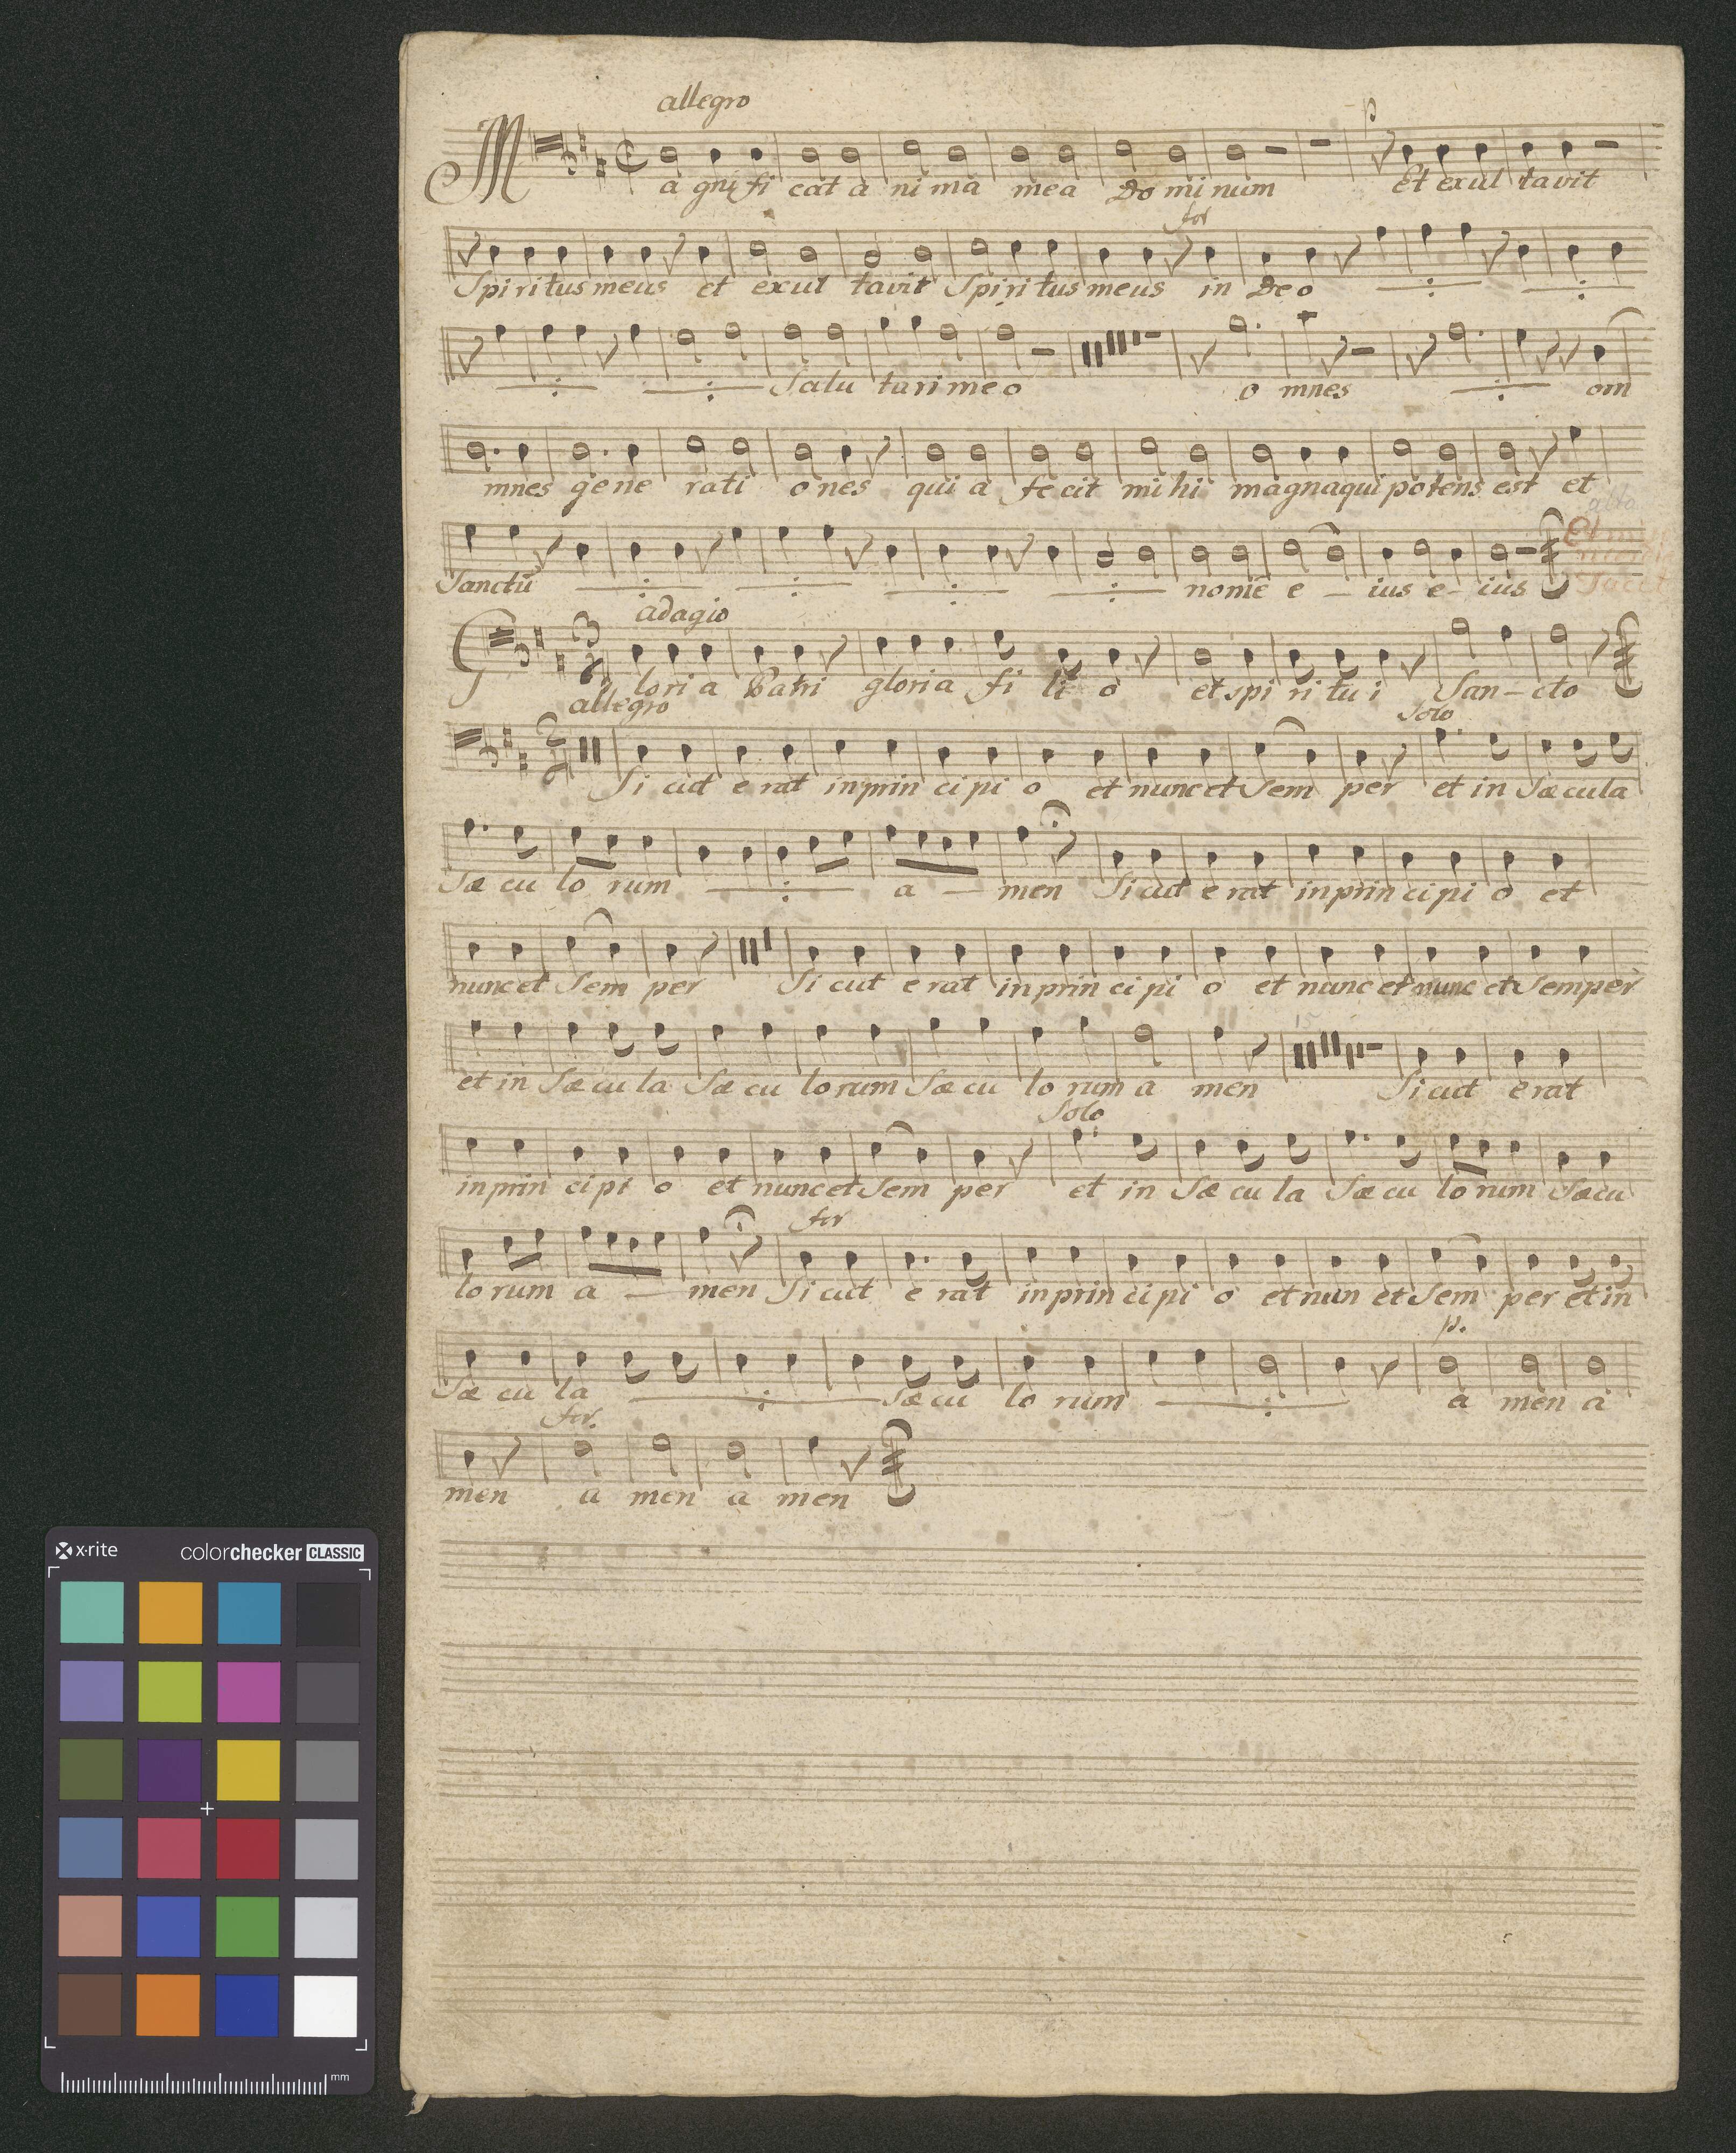 allegro
p
Magnificat anima mea Dominum Et exultavit
for
Spiritus meus et exultavit Spiritus meus in Deo
Salutari meo omnes om
mnes generationes quia fecit mihi magna qui potens est et
alto
Et
Sanctū nomē e - ius e - ius Tacet
adagio
Gloria Patri gloria filio et spiritui San - cto
allegro
Solo
Sicut erat in principio et nunc et Semper et in Sæcula
Sæculorum a - men Sicut erat in principio et
nunc et Semper Sicut erat in principio et nunc et nunc et Semper
et in Sæcula Sæculorum Sæculorum amen Sicut erat
Solo
in principio et nunc et Semper et in Sæcula Sæculorum Sæcu
for
lorum a - men Sicut erat in principio et nun et Semper et in
p.
Sæcula Sæculorum a men a
for.
men a men a men
x·rite colorchecker CLASSIC
mm